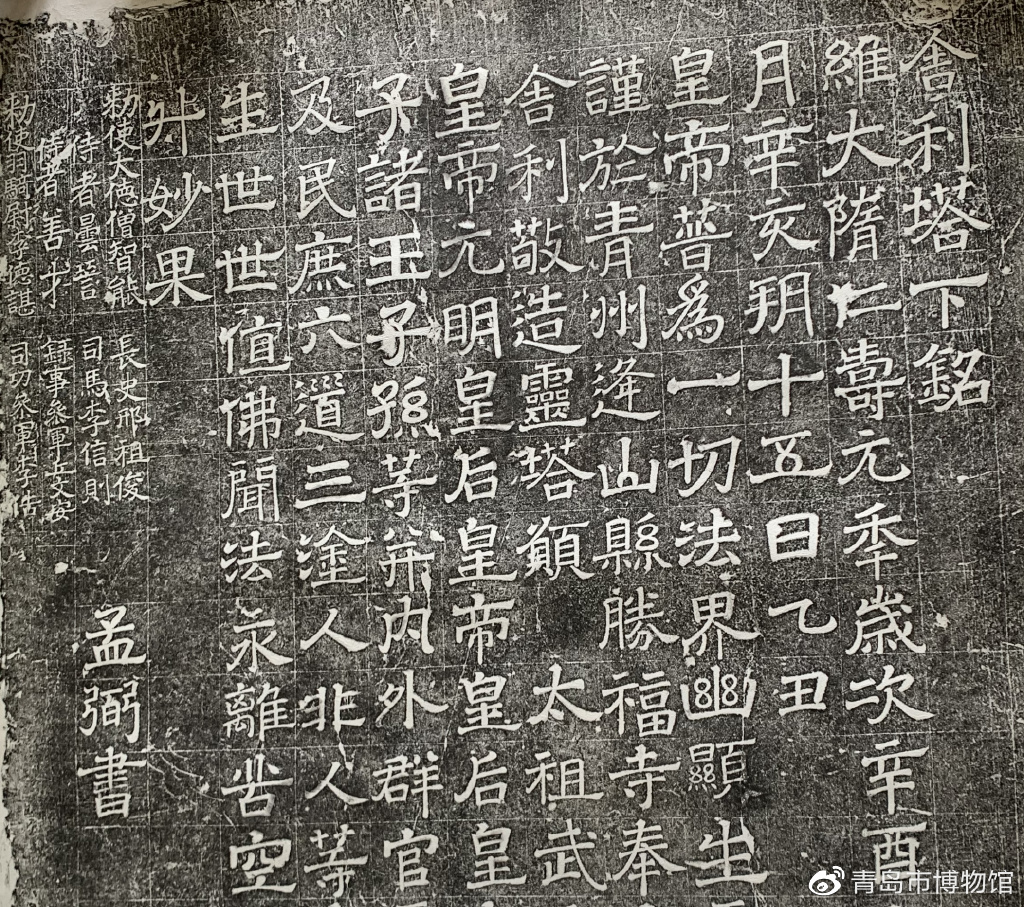 舎利塔下銘
維大隋仁壽元秊歲次辛酉
月辛亥朔十五日乙丑
皇帝普爲一切法界幽顯生
謹於青州逄山縣勝福寺奉
舎利敬造靈塔願 太祖武
皇帝元明皇后皇帝皇后皇
子諸王子孫等并內外群官
及民庶六道三塗人非人等
生世世值佛聞法永離苦空
升妙果
敕使大德僧智能 長史邢祖俊
孟弼書
侍者曇 司馬李信則
侍者善才 錄事參軍丘文安
敕使羽騎尉李德諶 司功參軍李
青岛市博物馆